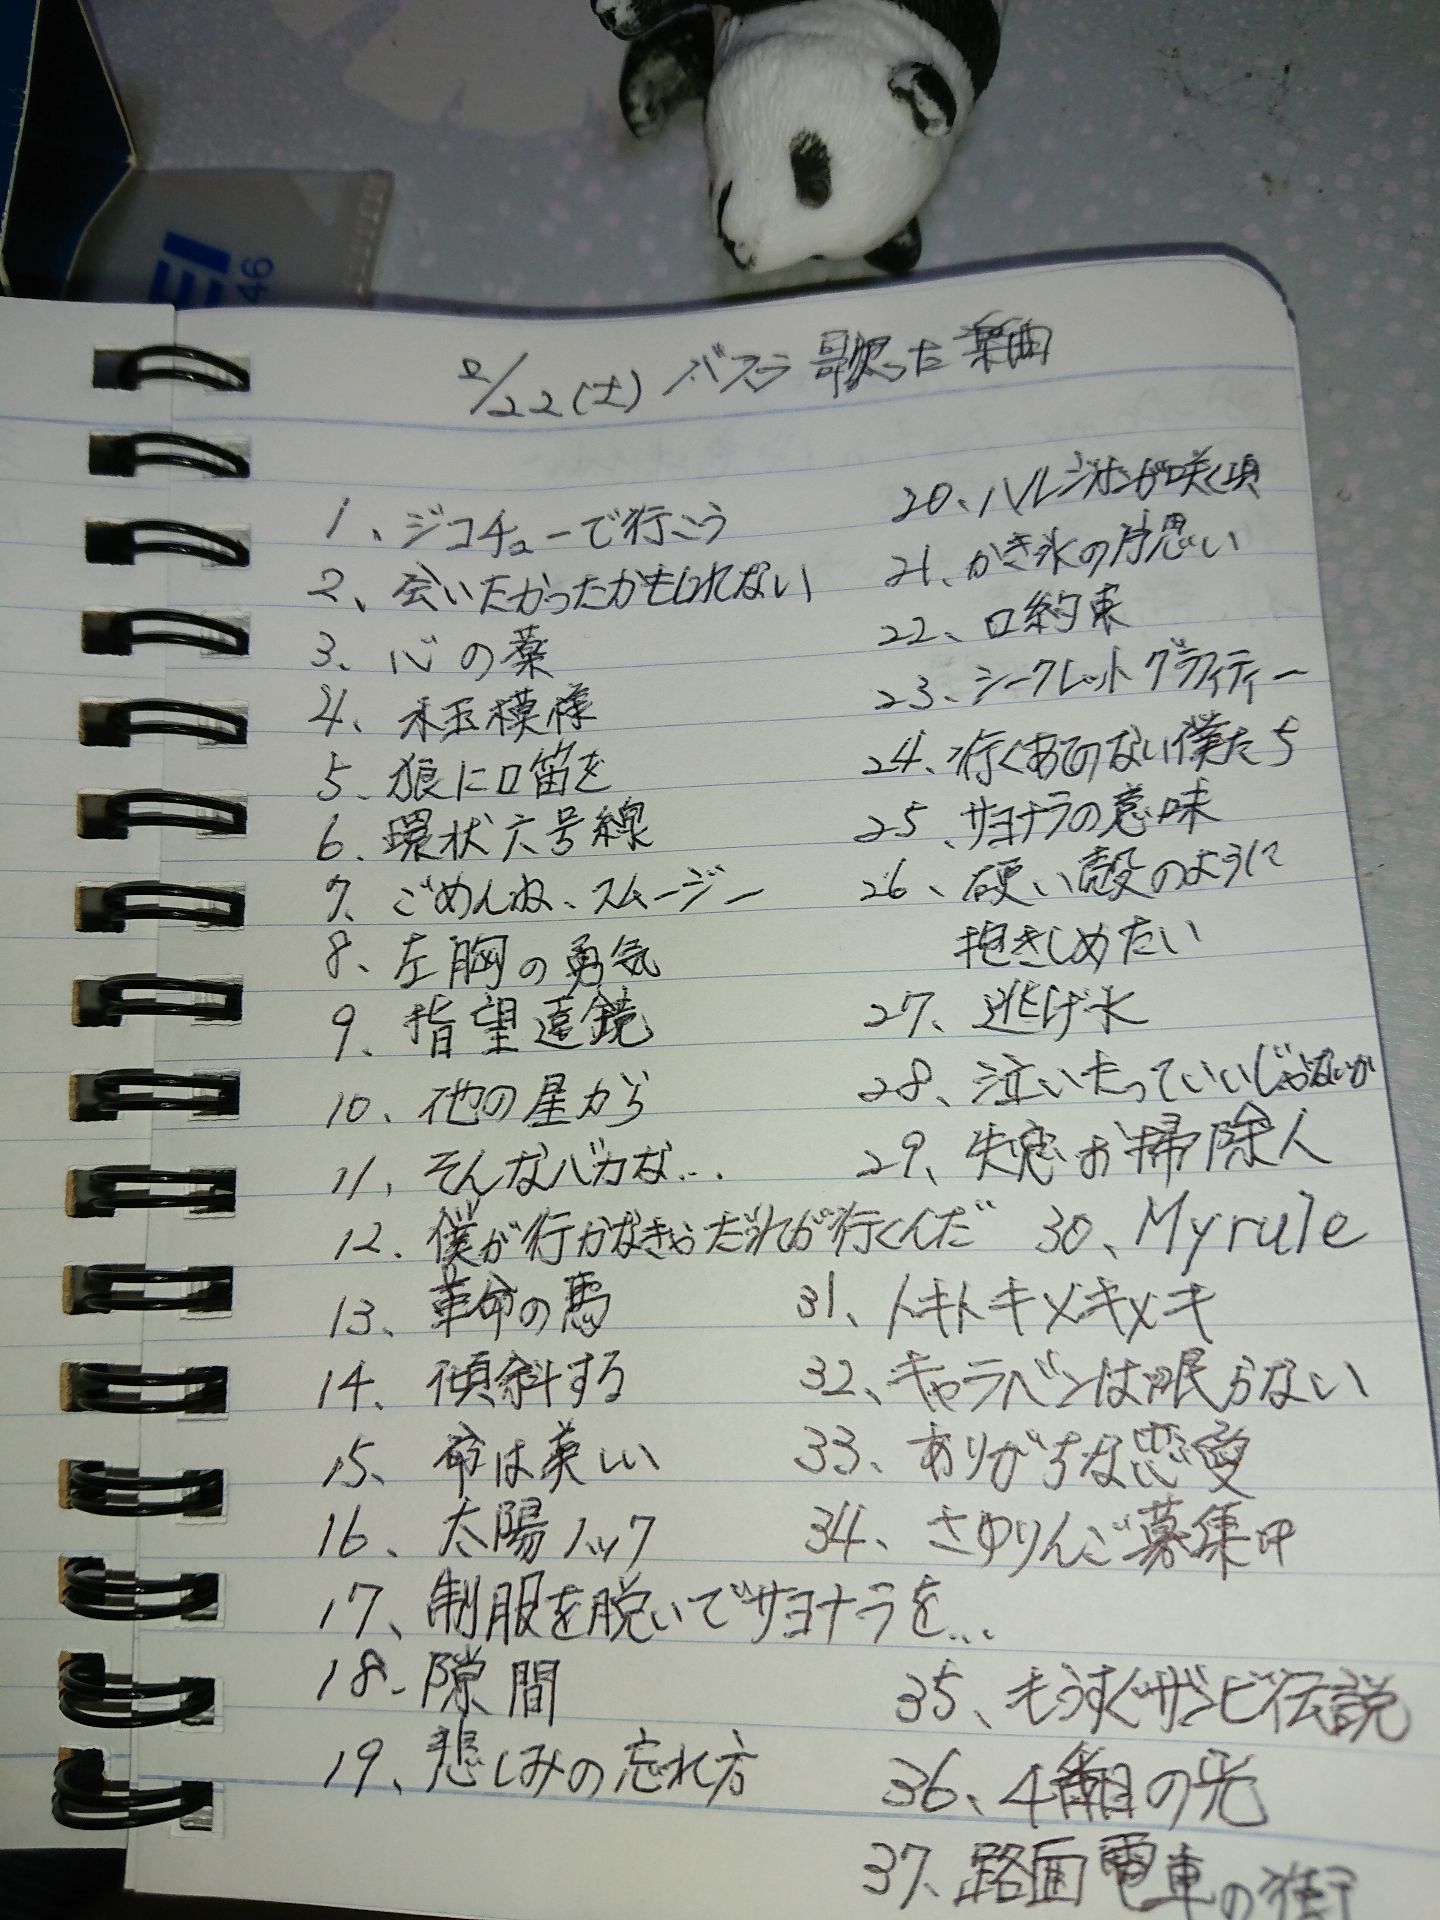 EI
46
2/22(土) バスラ 歌った楽曲
1、ジコチューで行こう
2、会いたかったかもしれない
3、心の薬
4、水玉模様
5、狼に口笛を
6、環状六号線
7、ごめんね、スムージー
8、左胸の勇気
9、指望遠鏡
10、他の星から
11、そんなバカな…
12、僕が行かなきゃだれが行くんだ
13、革命の馬
14、傾斜する
15、命は美しい
16、太陽ノック
17、制服を脱いでサヨナラを…
18、隙間
19、悲しみの忘れ方
20、ハルジオンが咲く頃
21、かき氷の片思い
22、口約束
23、シークレットグラフィティー
24、行くあてのない僕たち
25、サヨナラの意味
26、硬い殻のように
抱きしめたい
27、逃げ水
28、泣いたっていいじゃないか
29、失恋お掃除人
30、My rule
31、トキトキメキメキ
32、キャラバンは眠らない
33、ありがちな恋愛
34、さゆりんご募集中
35、もうすぐザンビ伝説
36、4番目の光
37、路面電車の街